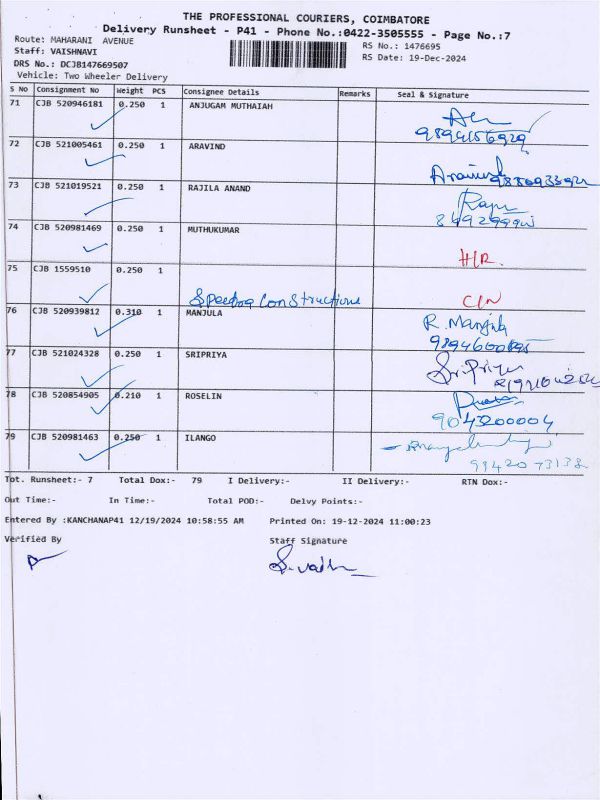 THE PROFESSIONAL COURIERS, COIMBATORE
Delivery Runsheet - P41 - Phone No.:0422-3505555 - Page No.:7
Route: MAHARANI AVENUE
RS No.: 1476695
Staff: VAISHNAVI
RS Date: 19-Dec-2024
DRS No.: DCJB147669507
Vehicle: Two Wheeler Delivery
S No Consignment No Weight PCS Consignee Details Remarks Seal & Signature
71 CJB 520946181 0.250 1 ANJUGAM MUTHAIAH
72 CJB 521005461 0.250 1 ARAVIND
73 CJB 521019521 0.250 1 RAJILA ANAND
74 CJB 520981469 0.250 1 MUTHUKUMAR
75 CJB 1559510 0.250 1
Constructions
76 CJB 520939812 0.310 1 MANJULA
77 CJB 521024328 0.250 1 SRIPRIYA
78 CJB 520854905 0.210 1 ROSELIN
9043200004
79 CJB 520981463 0.250 1 ILANGO
Tot. Runsheet:- 7 Total Dox:- 79 I Delivery:- II Delivery:- RTN Dox:-
Out Time:- In Time:- Total POD:- Delvy Points:-
Entered By :KANCHANAP41 12/19/2024 10:58:55 AM Printed On: 19-12-2024 11:00:23
Verified By Staff Signature